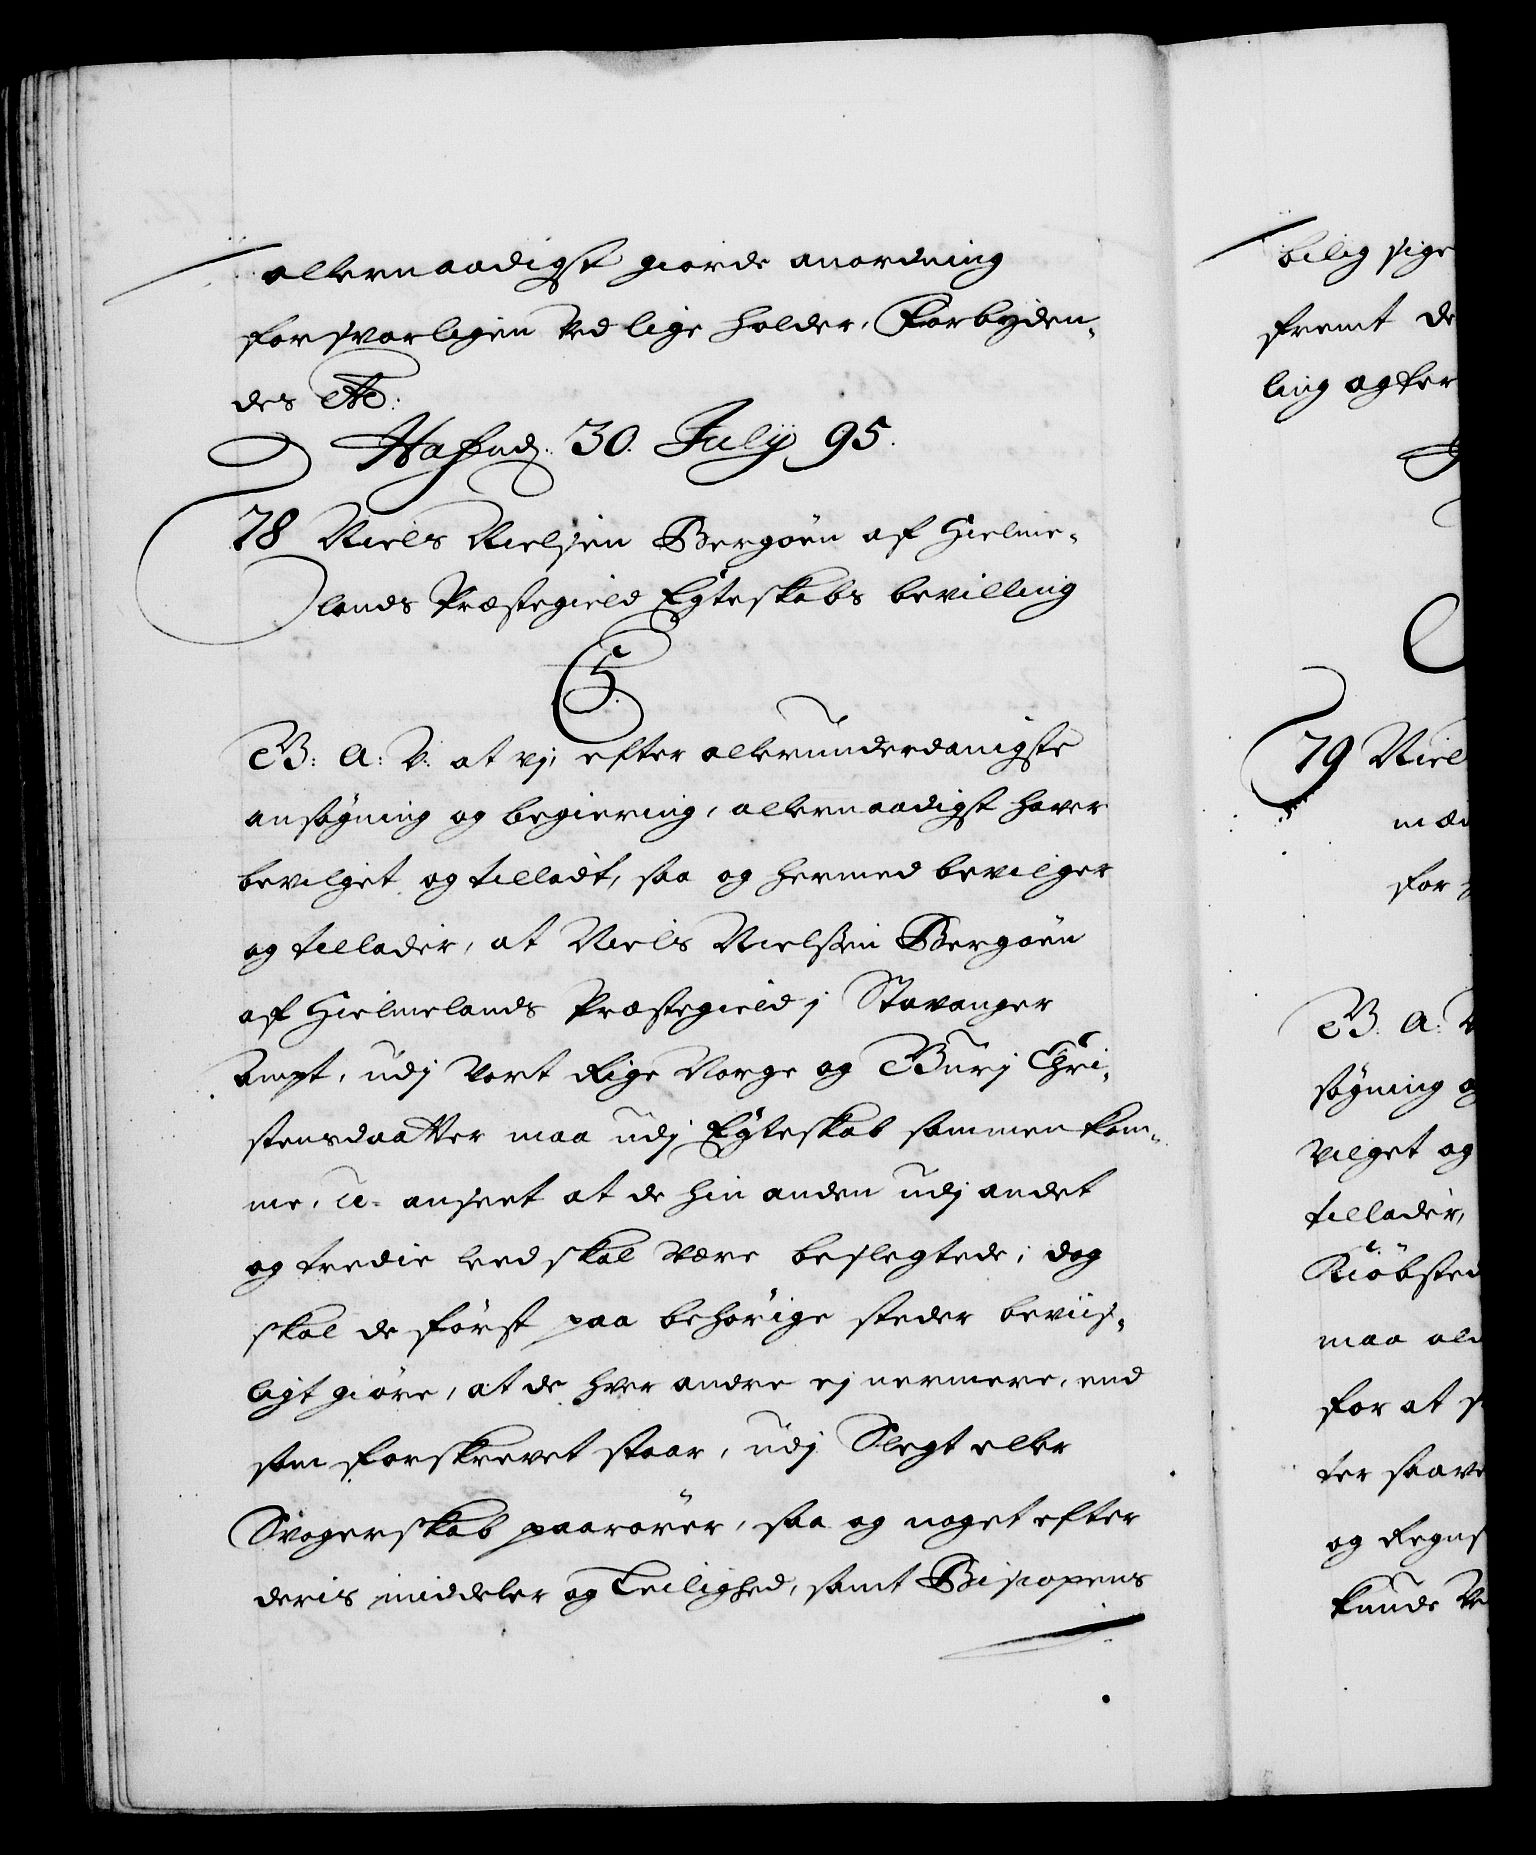 allernaadigst giorde anordning
forsvarligen ved lige holder, Forbyden-
des etc:
Hafnæ. 30. Julij 95.
78 Niels Nielsen Bergøen af Hielme-
lands Præstegield Egteskabs bevilling
C5.
B: A: V: at vj, efter allerunderdanigste
ansøgning og begiering, allernaadigst haver
bevilget og tilladt, saa og hermed bevilger
og tillader, at Niels Nielssen Bergøen
af Hielmelands Præstegield j Stavanger
Ampt, udj vort Rige Norge og Burj Chri-
stensdaatter maa udj Egteskab sammen kom-
me, u-anseet at de hin anden udj andet
og tredie leed skal være beslegtede, dog
skal de først paa behørige steder beviis-
ligt giøre, at de hver andre ej nermere, end
som forskrevet staar, udj Slegt eller
Svogerskab paarører, saa og noget efter
deris middeler og Leilighed, samt Biscopens
bilig sige
fremt de
ling agter
79 Niel
for
B: A: V
søgning og
vilget og
tillader,
Kiøbsted
maa al
for at
ter saavel
og Regns
kunde